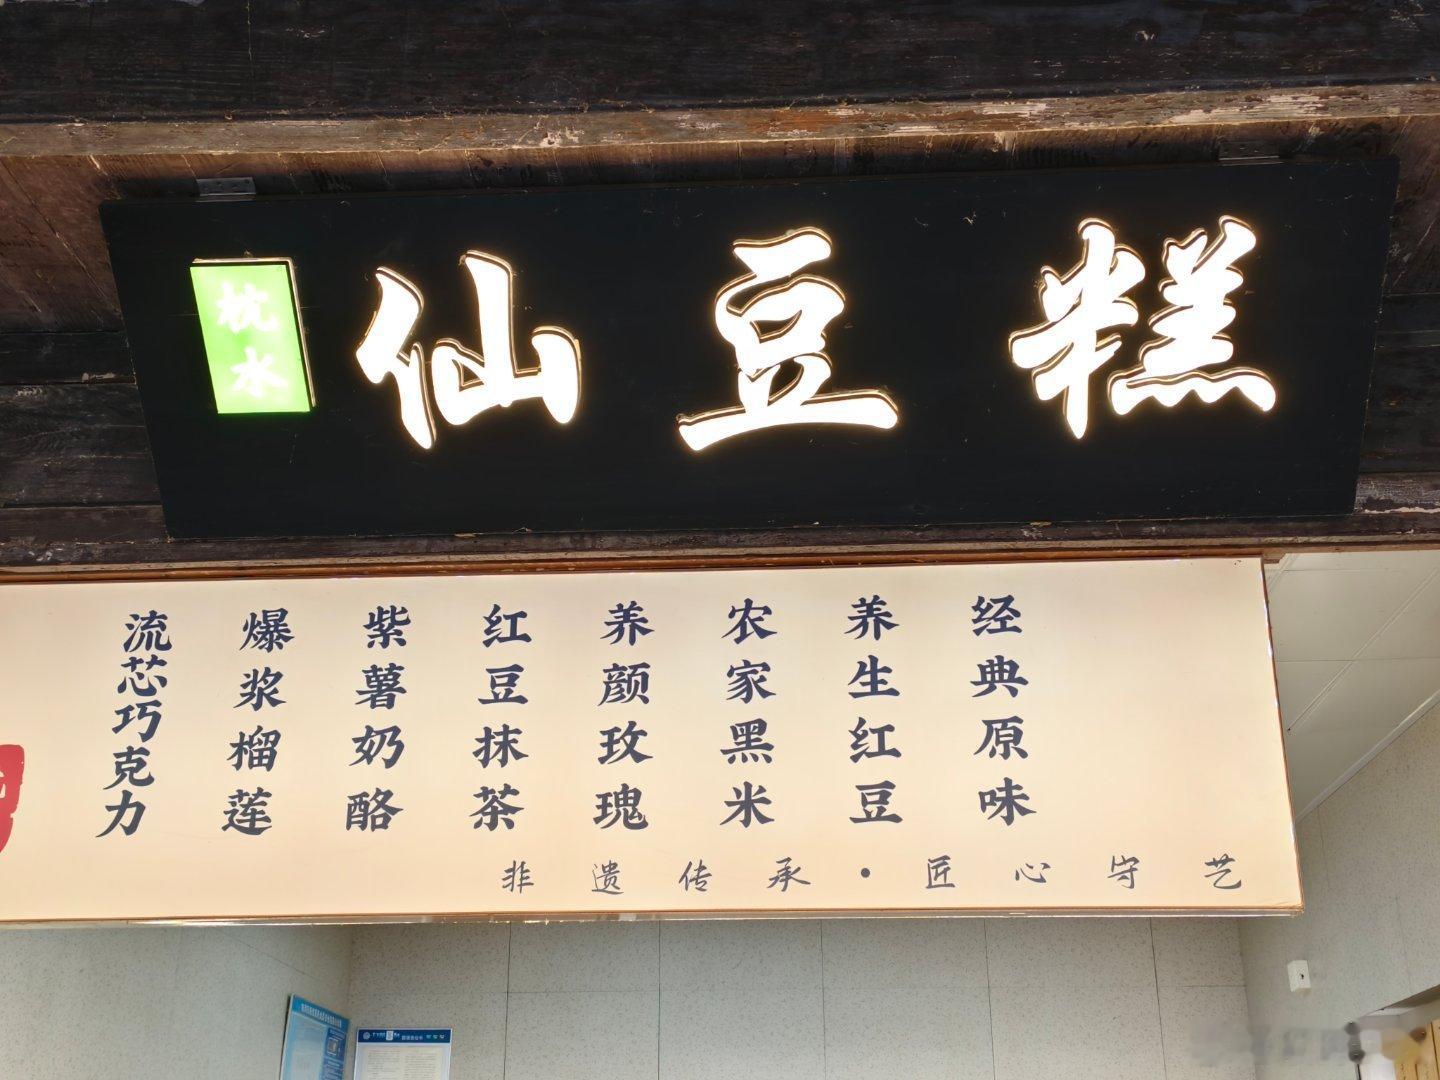 枕水
仙豆糕
经典原味
养生红豆
农家黑米
养颜玫瑰
红豆抹茶
紫薯奶酪
爆浆榴莲
流芯巧克力
非遗传承·匠心守艺